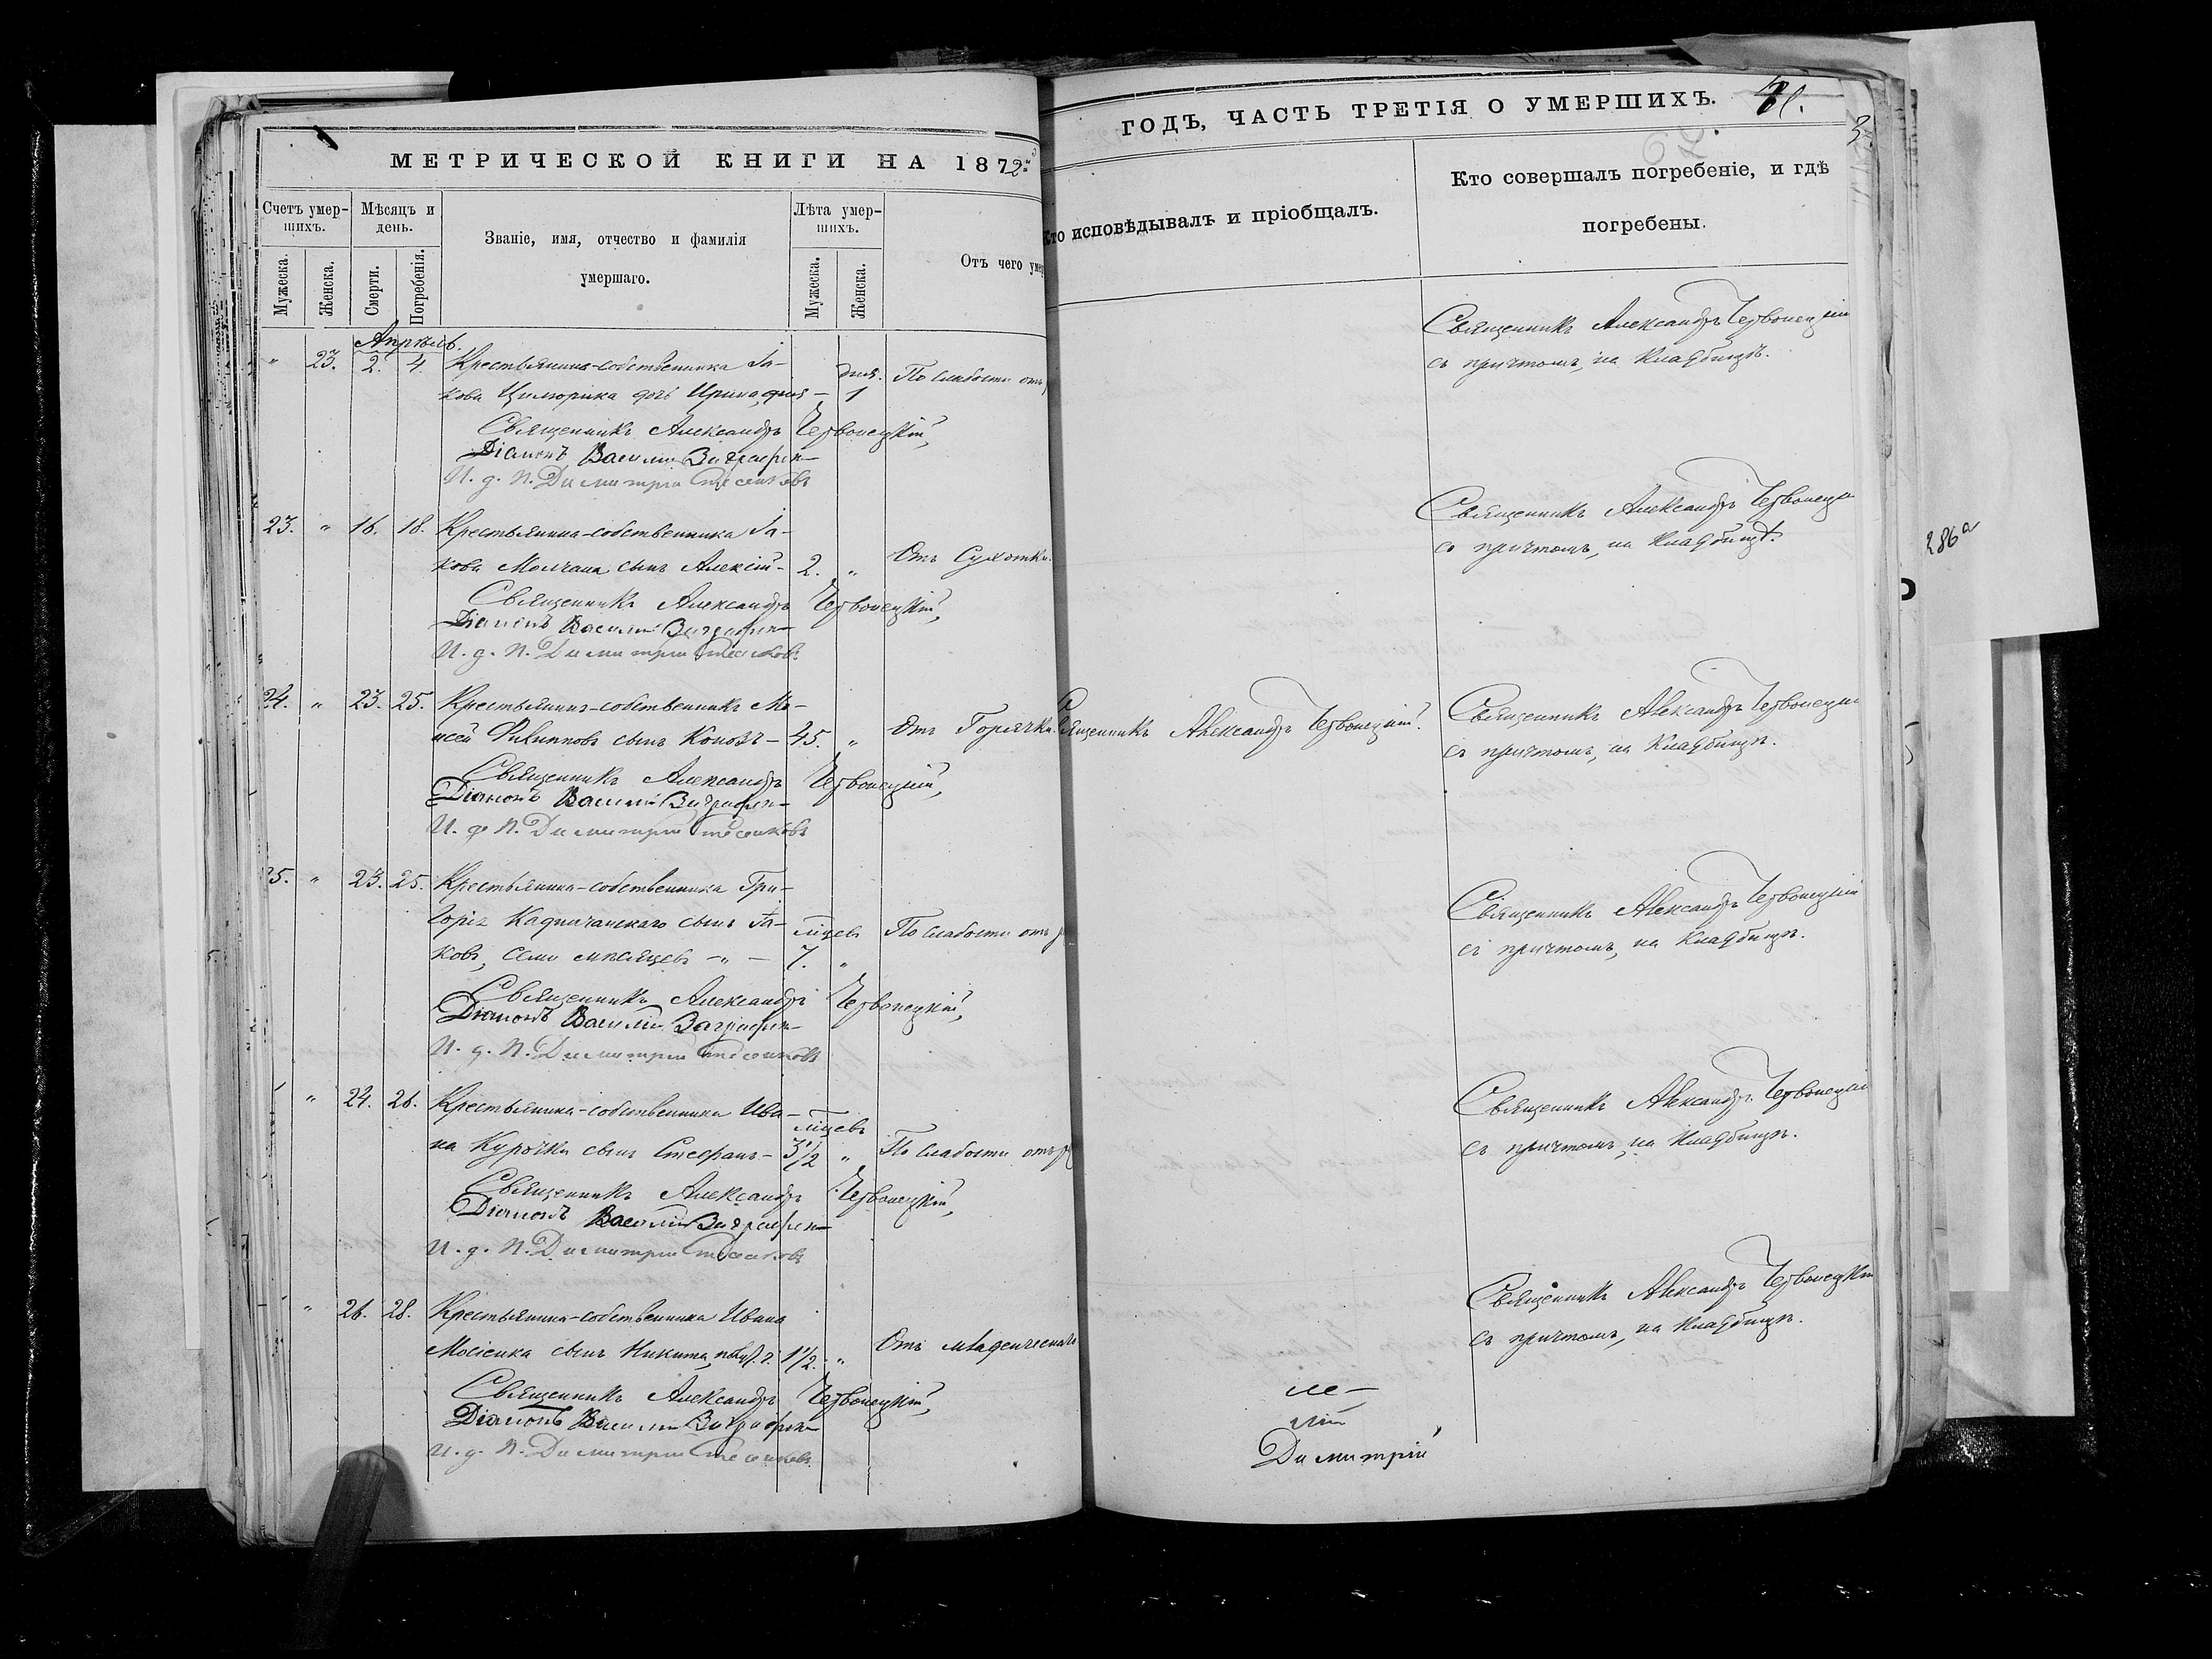 МЕТРИЧЕСКОЙ КНИГИ НА 1872
Счетъ умер-
шихъ.
Мѣсяцъ и
день.
Званіе, имя, отчество и фамилія
умершаго.
Лѣта умер-
шихъ.
Отъ чего
Мужеска.
Женска.
Смерти.
Погребенія.
Мужеска.
Женска.
Апрѣль.
" 23. 2. 4. Крестьянина-собственника Іа-
кова Цилюрика дочь Ирина, дня – 1 дня. По слабости отъ
Священникъ Александръ Червонецкій,
Діаконъ Василій
И. д. П. Димитрій
23. " 16. 18. Крестьянина-собственника Іа-
кова Молчана сынъ Алексій – 2. " Отъ Сухотки.
Священникъ Александръ Червонецкій,
Діаконъ Василій
И. д. П. Димитрій
24. " 23. 25. Крестьянинъ-собственникъ Мо-
исей Филипповъ сынъ Коновъ – 45. " Отъ Горячки.
Священникъ Александръ Червонецкій,
Діаконъ Василій
И. д. П. Димитрій
25. " 23. 25. Крестьянина-собственника Гри-
горія сынъ Іа-
ковъ, семи мѣсяцевъ – " – мцевъ 7. " По слабости отъ
Священникъ Александръ Червонецкій,
Діаконъ Василій
И. д. П. Димитрій
" 24. 26. Крестьянина-собственника Ива-
на Курочки сынъ Стефанъ – мцевъ 3 1/2 " По слабости отъ
Священникъ Александръ Червонецкій,
Діаконъ Василій
И. д. П. Димитрій
" 26. 28. Крестьянина-собственника Ивана
Мосіенка сынъ Никита, 1 1/2. " Отъ младенческаго
Священникъ Александръ Червонецкій,
Діаконъ Василій
И. д. П. Димитрій
ГОДЪ, ЧАСТЬ ТРЕТІЯ О УМЕРШИХЪ.
Кто исповѣдывалъ и пріобщалъ.
Кто совершалъ погребеніе, и гдѣ
погребены.
Священникъ Александръ Червонецкій
съ причтомъ, на Кладбищѣ.
Священникъ Александръ Червонецкій
съ причтомъ, на Кладбищѣ.
Священникъ Александръ Червонецкій.
Священникъ Александръ Червонецкій
съ причтомъ, на Кладбищѣ.
Священникъ Александръ Червонецкій
съ причтомъ, на Кладбищѣ.
Священникъ Александръ Червонецкій
съ причтомъ, на Кладбищѣ.
Священникъ Александръ Червонецкій
съ причтомъ, на Кладбищѣ.
Димитрій
286а